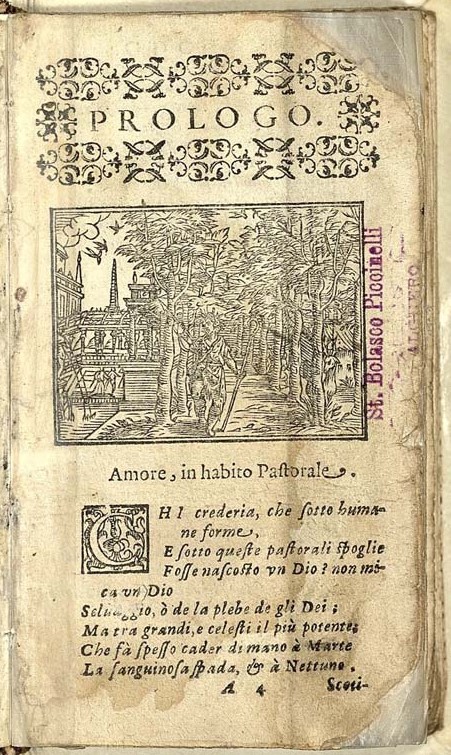 PROLOGO.
St. Bolasco Piccinelli
ALGHERO
Amore, in habito Paſtorale.
CHI crederia, che ſotto huma-
ne forme,
E ſotto queſte paſtorali ſpoglie
Foſſe naſcoſto vn Dio? non mi-
ca vn Dio
Seluaggio, ò de la plebe de gli Dei;
Ma tra grandi, e celeſti il più potente;
Che fà ſpeſſo cader di mano à Marte
La ſanguinoſa ſpada, & à Nettuno.
A 4
Scoti-